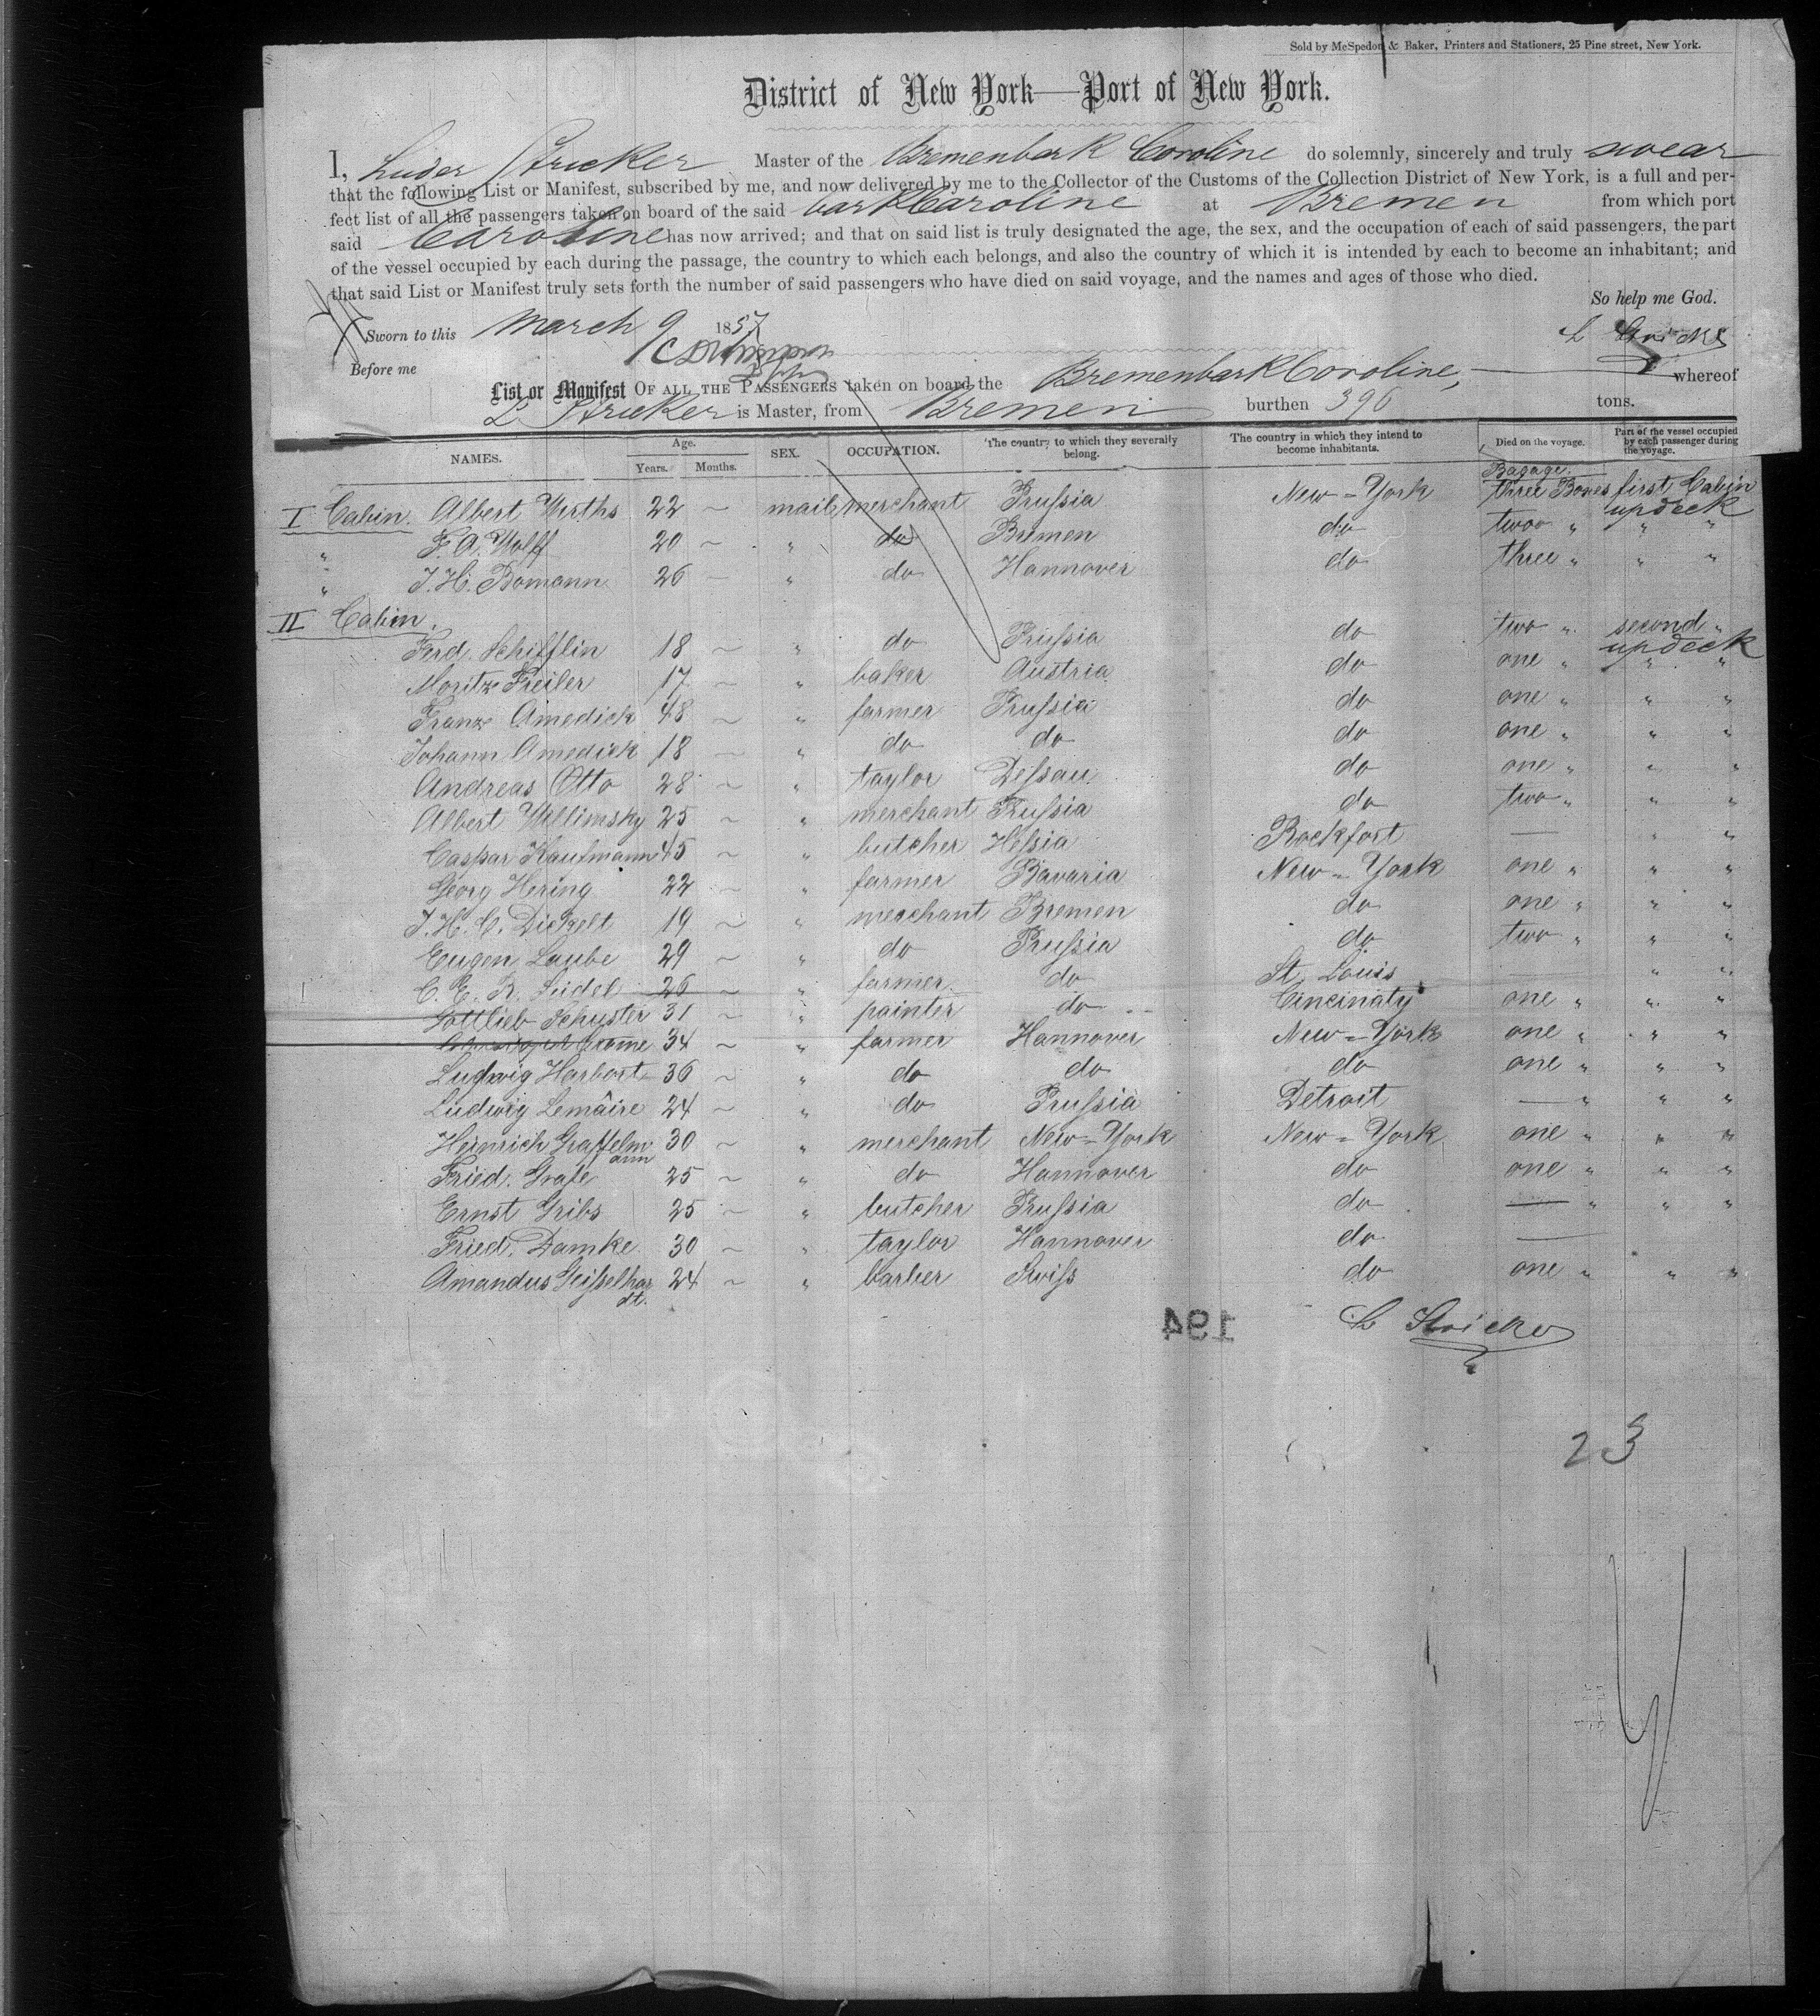 Sold by McSpedon & Baker, Printers and Stationers, 25 Pine street, New York.
District of New York—Port of New York.
I, Luder Stricker Master of the Bremenbark Caroline do solemnly, sincerely and truly swear
that the following List or Manifest, subscribed by me, and now delivered by me to the Collector of the Customs of the Collection District of New York, is a full and per-
fect list of all the passengers taken on board of the said bark Caroline at Bremen from which port
said Caroline has now arrived; and that on said list is truly designated the age, the sex, and the occupation of each of said passengers, the part
of the vessel occupied by each during the passage, the country to which each belongs, and also the country of which it is intended by each to become an inhabitant; and
that said List or Manifest truly sets forth the number of said passengers who have died on said voyage, and the names and ages of those who died.
So help me God.
Sworn to this March 9 1857
L Stricker
Before me
List or Manifest OF ALL THE PASSENGERS taken on board the Bremenbark Caroline, whereof
L Stricker is Master, from Bremen burthen 396 tons.
NAMES. Age. Years. Months. SEX. OCCUPATION. The country to which they severally belong. The country in which they intend to become inhabitants. Died on the voyage. Part of the vessel occupied by each passenger during the voyage.
Bagage.
I Cabin. Albert Wirths 22 ~ male merchant Prußia New=York three Boxes first Cabin
updeck
" F. A. Wolff 20 ~ " do Bremen do twoo " " "
" J. H. Bomann 26 — " do Hannover do three " " "
II Cabin.
Ferd. Schifflin 18 ~ " do Prußia do two " second "
updeck
Moritz Freiler 17 ~ " baker Austria do one " " "
Franz Amedick 48 ~ " farmer Prußia do one " " "
Johann Amedick 18 ~ " do do do one " " "
Andreas Otto 28 ~ " taylor Deßau do one " " "
Albert Willimsky 25 ~ " merchant Prußia do two " " "
Caspar Kaufmann 45 ~ " butcher Heßia Rockfort — " "
Georg Hering 22 ~ " farmer Bavaria New=York one " " "
J. H. C. Dickelt 19 ~ " merchant Bremen do one " " "
Eugen Laube 29 ~ " do Prußia do two " " "
C. E. R. Seidel 26 ~ " farmer do St. Louis — " "
Gottlieb Schuster 31 ~ " painter do Cincinaty one " " "
Grome 34 ~ " farmer Hannover New=York one " " "
Ludwig Harbort 36 ~ " do do do one " " "
Ludwig Lemâire 24 ~ " do Prußia Detroit — " " "
Heinrich Graffelm 30 ~ " merchant New=York New=York one " " "
ann
Fried. Grafe 25 ~ " do Hannover do one " " "
Ernst Gribs 25 ~ " butcher Prußia do — " " "
Fried. Damke 30 ~ " taylor Hannover do —
Amandus Geißelhar 24 ~ " barber Swiß do one " " "
dt.
194
L Stricker
23